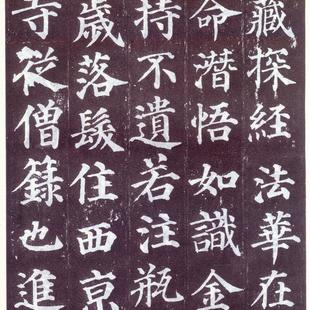 藏探經法華在
命潛悟如識金
持不遺若注瓶
歲落髮住西京
寺從僧籙也進